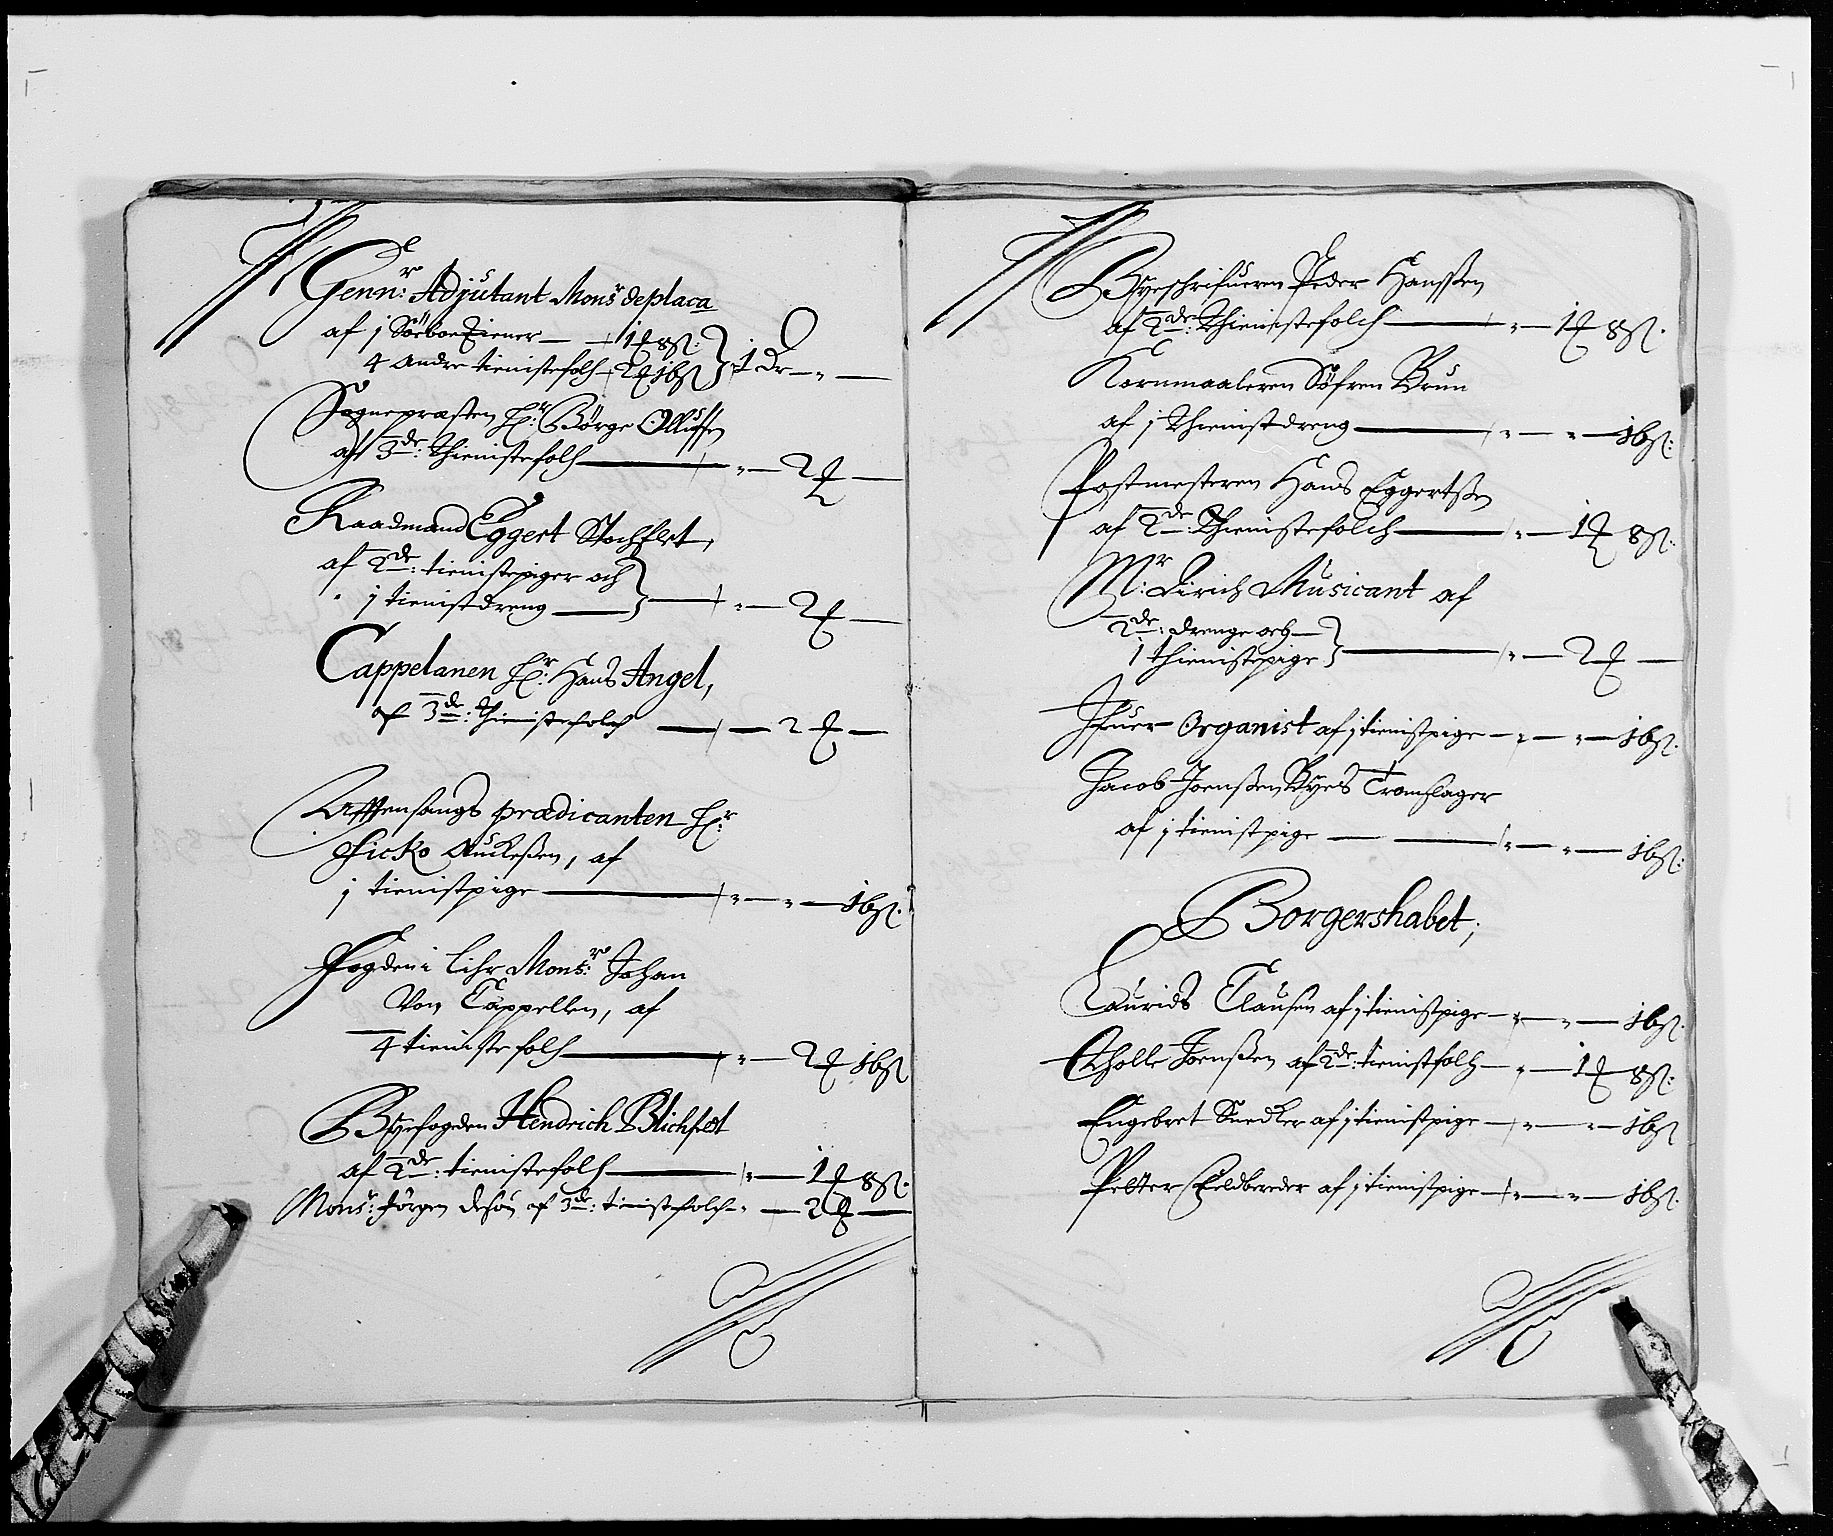 Genn:r Adjutant Monsr deplaca
af 1 Söeboe Tiener — 1 ß 8 ß:
4 Andre tienistefolch 2 16 ß } 1 Dr — " —
Sognepræsten Hr: Börge Olluffsen
af 3de: Thienistefolch — " — 2 —
Raadmand Eggert Stochflet,
af 2de: tienistepiger och
" 1 tienistdreng } — " — 2 —
Cappelanen Hr: Hans Angel,
af 3de: Thienistefolch — — 2 —
Afftensangs prædicanten Hr:
Sicko Auckeßen, af
1 tienistpige — " — " — 16 ß:
Fogden i Lihr Monsr: Johan
Von Cappellen, af
4 tieniste folch — " — 2 16 ß
Byefogden Hendrich Blichfeldt
af 2de: tienistefolch — " — 1 8 ß:
Monsr: Jörgen af 3de: tienistefolch — " — 2 —
Byeschrifueren Peder Hanssen
af 2de: Thienistefolch — " — 1 8 ß:
Kornmaaleren Söfren Brun
af 1 Thienistdreng — " — " — 16 ß:
Postmesteren Hans Eggertßen
af 2de: Thienistefolch — " — 1 8 ß:
Mr: Dirich Musicant af
2de: drenge och
1 thienistepige } — " — 2 —
Ifuer Organist af 1 tienistpige — " — " — 16 ß:
Jacob Joenßen Byes Tromslager
af 1 tienistpige — " — " — 16 ß:
Borgerskabet;
Laurids Clausen af 1 tienistpige — " — " — 16 ß:
Tholle Joenßen af 2de: tienistfolch — " — 1 8 ß:
Engebret Snedker af 1 tienistpige — " — " — 16 ß
Petter Feldbereder af 1 tienistpige — " — " — 16 ß: